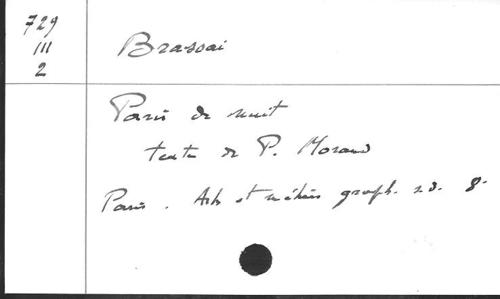 729
III
2
Brassai
Paris de nuit
texte de P. Morand
Paris. Arts et métiers graph. s.d. 8.